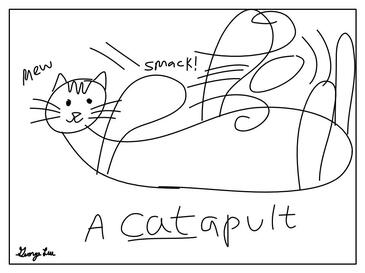 mew
smack!
A catapult
George Lee